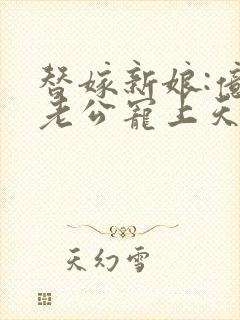 替嫁新娘:
老公寵上天
天幻雪